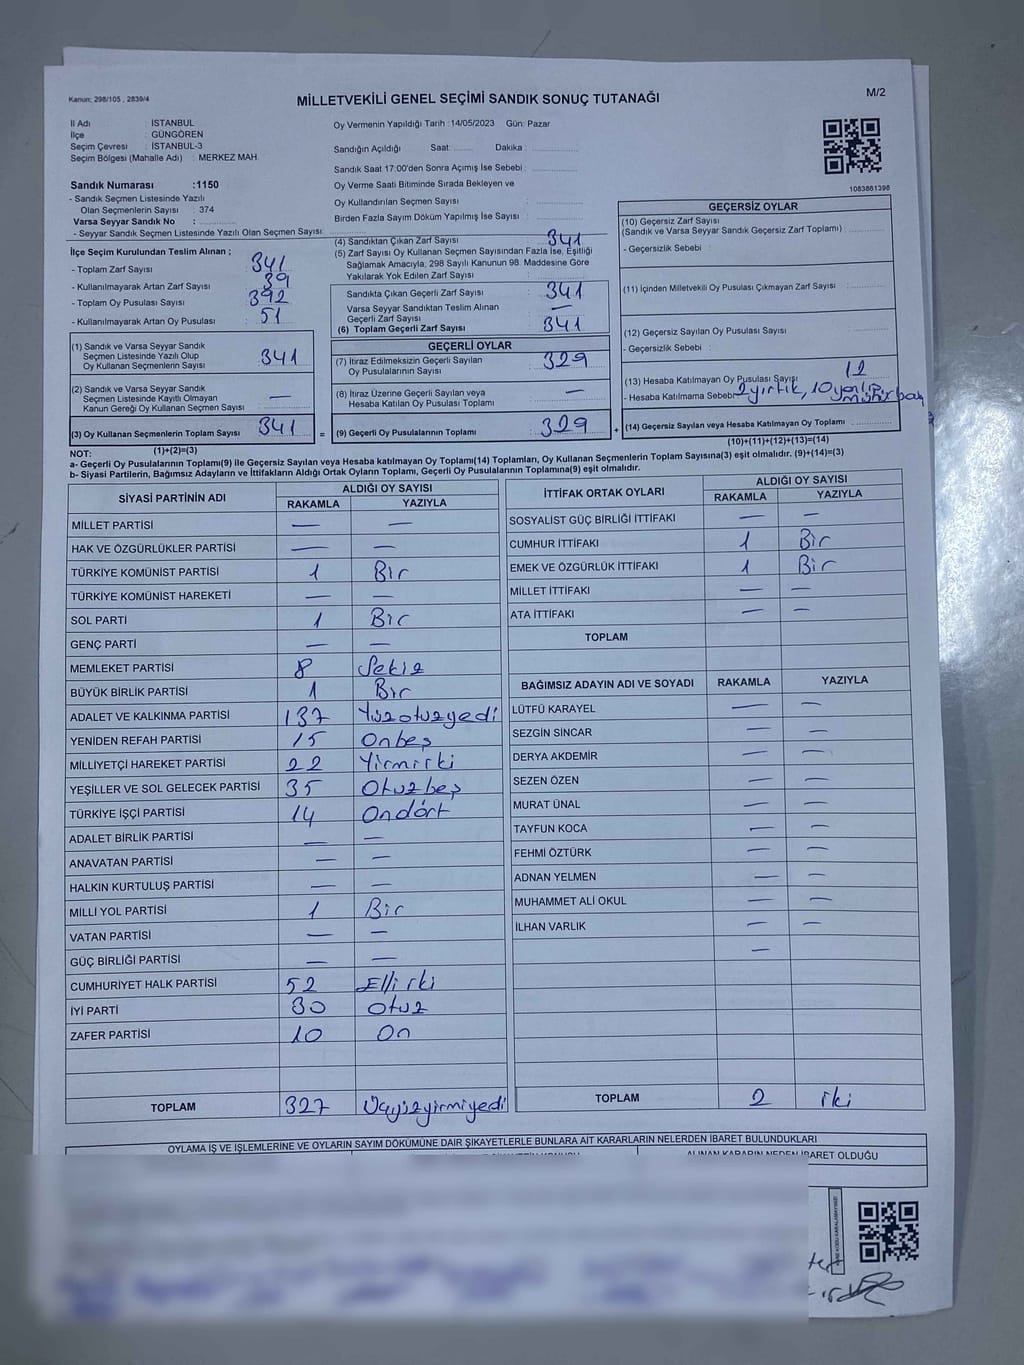 Kanun: 298/105 , 2839/4
MİLLETVEKİLİ GENEL SEÇİMİ SANDIK SONUÇ TUTANAĞI
M/2
İl Adı : İSTANBUL
İlçe : GÜNGÖREN
Seçim Çevresi : İSTANBUL-3
Seçim Bölgesi (Mahalle Adı) : MERKEZ MAH.
Sandık Numarası :1150
- Sandık Seçmen Listesinde Yazılı
Olan Seçmenlerin Sayısı : 374
Varsa Seyyar Sandık No :
- Seyyar Sandık Seçmen Listesinde Yazılı Olan Seçmen Sayısı
Oy Vermenin Yapıldığı Tarih :14/05/2023 Gün: Pazar
Sandığın Açıldığı Saat: Dakika :
Sandık Saat 17:00'den Sonra Açımış İse Sebebi :
Oy Verme Saati Bitiminde Sırada Bekleyen ve
Oy Kullandırılan Seçmen Sayısı :
Birden Fazla Sayım Döküm Yapılmış İse Sayısı :
1083861398
İlçe Seçim Kurulundan Teslim Alınan ;
- Toplam Zarf Sayısı : 341
- Kullanılmayarak Artan Zarf Sayısı : 39
- Toplam Oy Pusulası Sayısı : 392
- Kullanılmayarak Artan Oy Pusulası : 51
(1) Sandık ve Varsa Seyyar Sandık
Seçmen Listesinde Yazılı Olup
Oy Kullanan Seçmenlerin Sayısı : 341
(2) Sandık ve Varsa Seyyar Sandık
Seçmen Listesinde Kayıtlı Olmayan
Kanun Gereği Oy Kullanan Seçmen Sayısı : —
(3) Oy Kullanan Seçmenlerin Toplam Sayısı : 341
(1)+(2)=(3)
(4) Sandıktan Çıkan Zarf Sayısı : 341
(5) Zarf Sayısı Oy Kullanan Seçmen Sayısından Fazla İse, Eşitliği
Sağlamak Amacıyla, 298 Sayılı Kanunun 98. Maddesine Göre
Yakılarak Yok Edilen Zarf Sayısı :
Sandıkta Çıkan Geçerli Zarf Sayısı : 341
Varsa Seyyar Sandıktan Teslim Alınan
Geçerli Zarf Sayısı : —
(6) Toplam Geçerli Zarf Sayısı : 341
GEÇERLİ OYLAR
(7) İtiraz Edilmeksizin Geçerli Sayılan
Oy Pusulalarının Sayısı : 329
(8) İtiraz Üzerine Geçerli Sayılan veya
Hesaba Katılan Oy Pusulası Toplamı : —
= (9) Geçerli Oy Pusulalarının Toplamı : 329
GEÇERSİZ OYLAR
(10) Geçersiz Zarf Sayısı
(Sandık ve Varsa Seyyar Sandık Geçersiz Zarf Toplamı) :
- Geçersizlik Sebebi :
(11) İçinden Milletvekili Oy Pusulası Çıkmayan Zarf Sayısı :
(12) Geçersiz Sayılan Oy Pusulası Sayısı :
- Geçersizlik Sebebi :
(13) Hesaba Katılmayan Oy Pusulası Sayısı : 12
- Hesaba Katılmama Sebebi : 2 yırtık, 10
+ (14) Geçersiz Sayılan veya Hesaba Katılmayan Oy Toplamı
(10)+(11)+(12)+(13)=(14)
NOT:
a- Geçerli Oy Pusulalarının Toplamı(9) ile Geçersiz Sayılan veya Hesaba katılmayan Oy Toplamı(14) Toplamları, Oy Kullanan Seçmenlerin Toplam Sayısına(3) eşit olmalıdır. (9)+(14)=(3)
b- Siyasi Partilerin, Bağımsız Adayların ve İttifakların Aldığı Ortak Oyların Toplamı, Geçerli Oy Pusulalarının Toplamına(9) eşit olmalıdır.
SİYASİ PARTİNİN ADI ALDIĞI OY SAYISI
RAKAMLA YAZIYLA
MİLLET PARTİSİ — —
HAK VE ÖZGÜRLÜKLER PARTİSİ — —
TÜRKİYE KOMÜNİST PARTİSİ 1 Bir
TÜRKİYE KOMÜNİST HAREKETİ — —
SOL PARTİ 1 Bir
GENÇ PARTİ — —
MEMLEKET PARTİSİ 8 Sekiz
BÜYÜK BİRLİK PARTİSİ 1 Bir
ADALET VE KALKINMA PARTİSİ 137 Yüzotuzyedi
YENİDEN REFAH PARTİSİ 15 Onbeş
MİLLİYETÇİ HAREKET PARTİSİ 22 Yirmiiki
YEŞİLLER VE SOL GELECEK PARTİSİ 35 Otuzbeş
TÜRKİYE İŞÇİ PARTİSİ 14 Ondört
ADALET BİRLİK PARTİSİ — —
ANAVATAN PARTİSİ — —
HALKIN KURTULUŞ PARTİSİ — —
MİLLİ YOL PARTİSİ 1 Bir
VATAN PARTİSİ — —
GÜÇ BİRLİĞİ PARTİSİ — —
CUMHURİYET HALK PARTİSİ 52 Elliiki
İYİ PARTİ 30 Otuz
ZAFER PARTİSİ 10 On
TOPLAM 327 Üçyüzyirmiyedi
İTTİFAK ORTAK OYLARI ALDIĞI OY SAYISI
RAKAMLA YAZIYLA
SOSYALİST GÜÇ BİRLİĞİ İTTİFAKI — —
CUMHUR İTTİFAKI 1 Bir
EMEK VE ÖZGÜRLÜK İTTİFAKI 1 Bir
MİLLET İTTİFAKI — —
ATA İTTİFAKI — —
TOPLAM
BAĞIMSIZ ADAYIN ADI VE SOYADI RAKAMLA YAZIYLA
LÜTFÜ KARAYEL — —
SEZGİN SİNCAR — —
DERYA AKDEMİR — —
SEZEN ÖZEN — —
MURAT ÜNAL — —
TAYFUN KOCA — —
FEHMİ ÖZTÜRK — —
ADNAN YELMEN — —
MUHAMMET ALİ OKUL — —
İLHAN VARLIK — —
—
TOPLAM 2 iki
OYLAMA İŞ VE İŞLEMLERİNE VE OYLARIN SAYIM DÖKÜMÜNE DAİR ŞİKAYETLERLE BUNLARA AİT KARARLARIN NELERDEN İBARET BULUNDUKLARI
ALINAN KARARIN NEDEN İBARET OLDUĞU